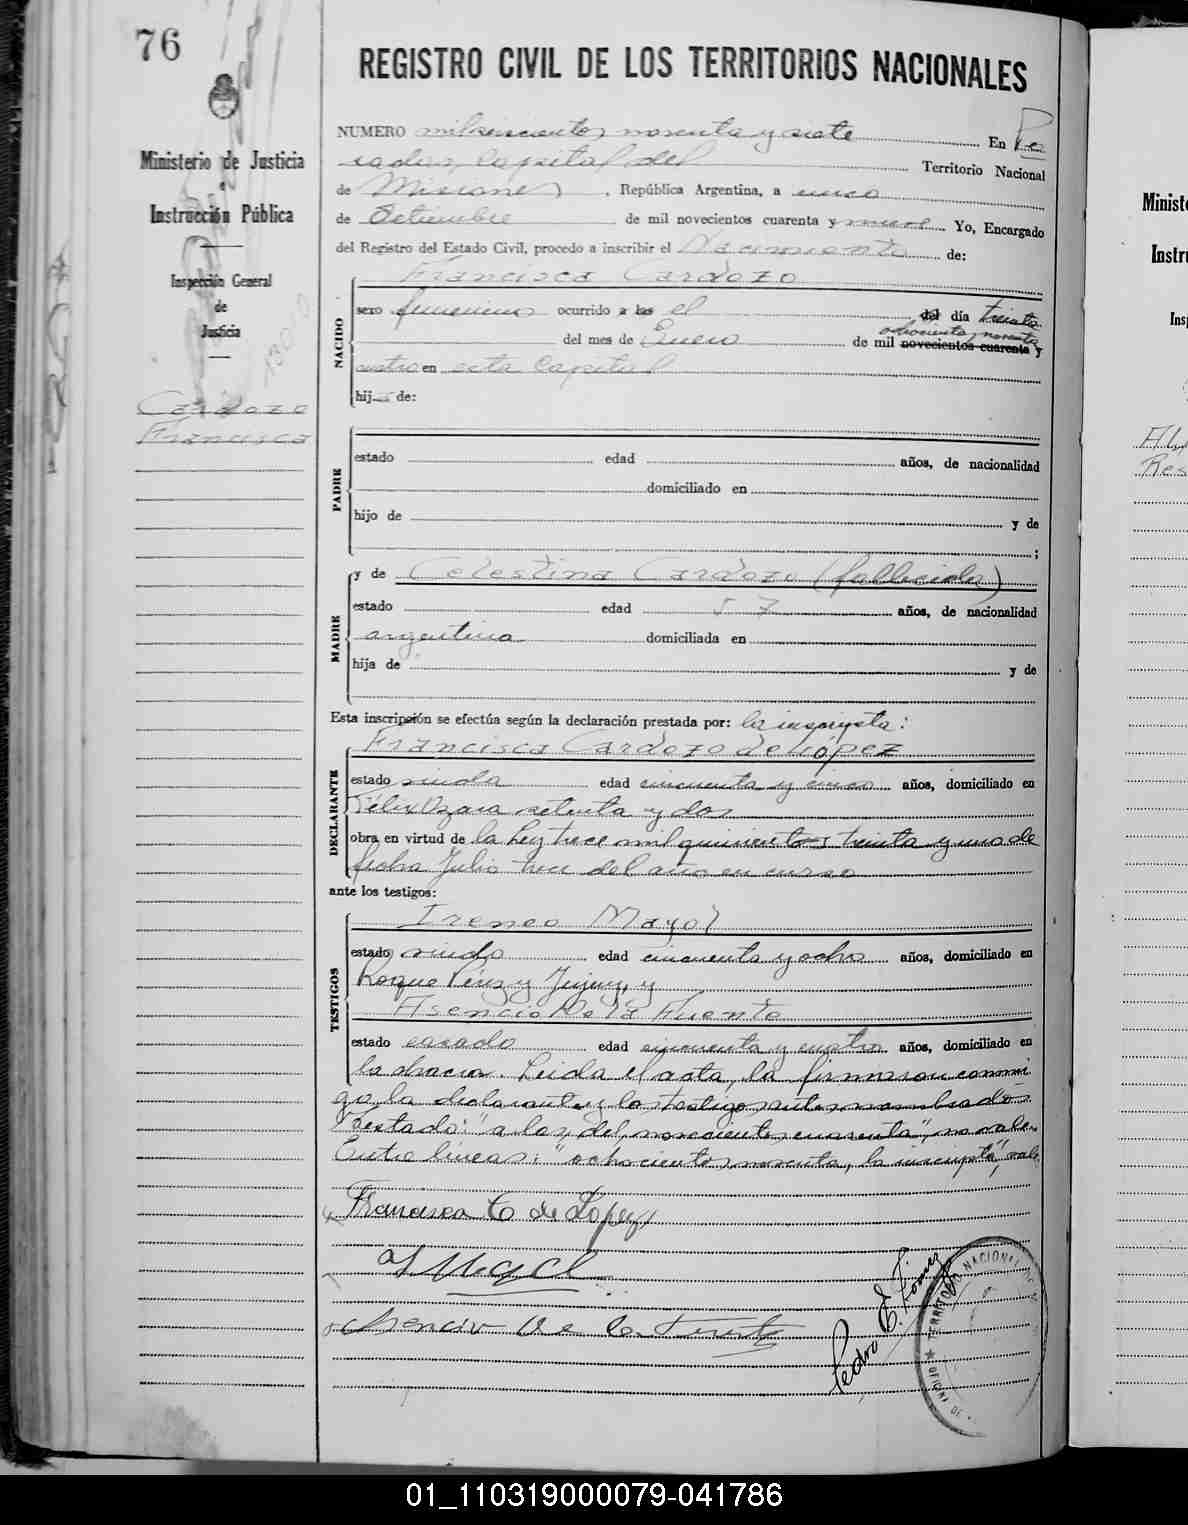 76
Ministerio de Justicia
e
Instrucción Pública
Inspección General
de
Justicia
Cardozo
Francisca
REGISTRO CIVIL DE LOS TERRITORIOS NACIONALES
NUMERO mil seiscientos noventa y siete En Po
sadas, Capital del Territorio Nacional
de Misiones, República Argentina, a cinco
de Setiembre de mil novecientos cuarenta y nueve. Yo, Encargado
del Registro del Estado Civil, procedo a inscribir el Nacimiento de:
NACIDO
Francisca Cardozo
sexo femenino ocurrido a las el del día treinta
ochocientos noventa
del mes de Enero de mil novecientos cuarenta y
cuatro en esta Capital
hij de:
PADRE
estado edad años, de nacionalidad
domiciliado en
hijo de y de
;
MADRE
y de Celestina Cardozo (fallecida)
estado edad 57 años, de nacionalidad
argentina domiciliada en
hija de y de
Esta inscripción se efectúa según la declaración prestada por: la inscripta:
DECLARANTE
Francisca Cardozo de López
estado viuda edad cincuenta y cinco años, domiciliado en
Félix Azara setenta y dos
obra en virtud de la Ley trece mil quinientos treinta y uno de
fecha Julio trece del año en curso
ante los testigos:
TESTIGOS
Ireneo Mayol
estado viudo edad cincuenta y ocho años, domiciliado en
Roque Pérez y Jujuy, y
Asencio De la Fuente
estado casado edad cincuenta y cuatro años, domiciliado en
la chacra. Leida el acta, la firmaron conmi
go, la declarante y los testigos antes nombrados
Testado: "a las, del, novecientos cuarenta", no vale.
Entre lineas: "ochocientos noventa, la inscripta", vale.
Francisca C de Lopez
I Mayol
Asencio De la Fuente
Pedro E. Gómez
TERRITORIO NACIONAL DE
OFICINA DE
Minist
Instr
Insp
01_110319000079-041786